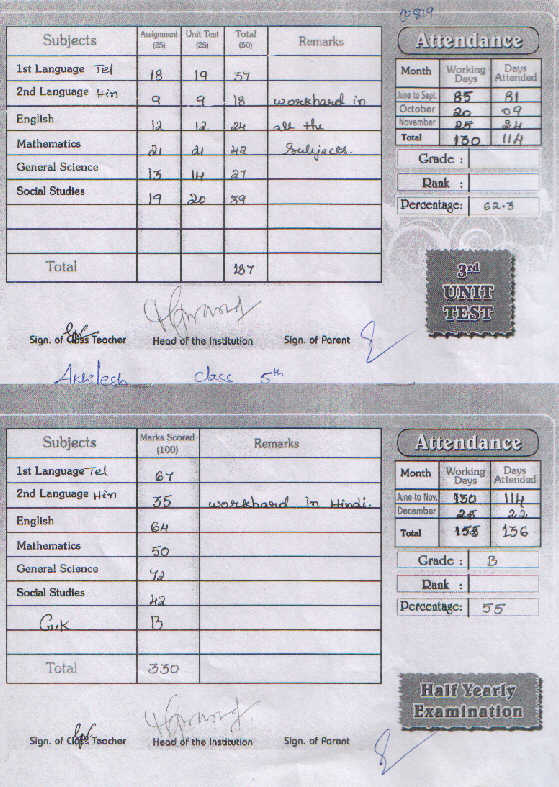 Subjects Assignment (25) Unit Test (25) Total (50) Remarks
1st Language Tel 18 19 37
2nd Language Hin 9 9 18 workhard in
English 12 12 24 all the
Mathematics 21 21 42 Subjects.
General Science 13 14 27
Social Studies 19 20 39
Total 187
Sign. of Class Teacher Head of the Institution Sign. of Parent
Attendance
Month Working Days Days Attended
June to Sept. 85 81
October 20 09
November 25 24
Total 130 114
Grade :
Rank :
Percentage: 62.3
3rd
UNIT
TEST
Akhilesh class 5th
Subjects Marks Scored (100) Remarks
1st Language Tel 67
2nd Language Hin 35 workhard in Hindi.
English 64
Mathematics 50
General Science 72
Social Studies 42
G.K B
Total 330
Sign. of Class Teacher Head of the Institution Sign. of Parent
Attendance
Month Working Days Days Attended
June to Nov. 130 114
December 25 22
Total 155 136
Grade : B
Rank :
Percentage: 55
Half Yearly
Examination